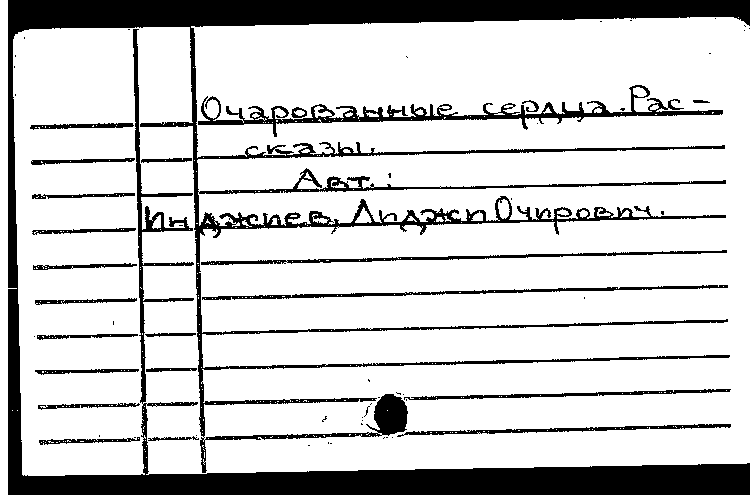 Очарованные сердца. Рас-
сказы.
Авт.:
Инджиев, Лиджи Очирович.